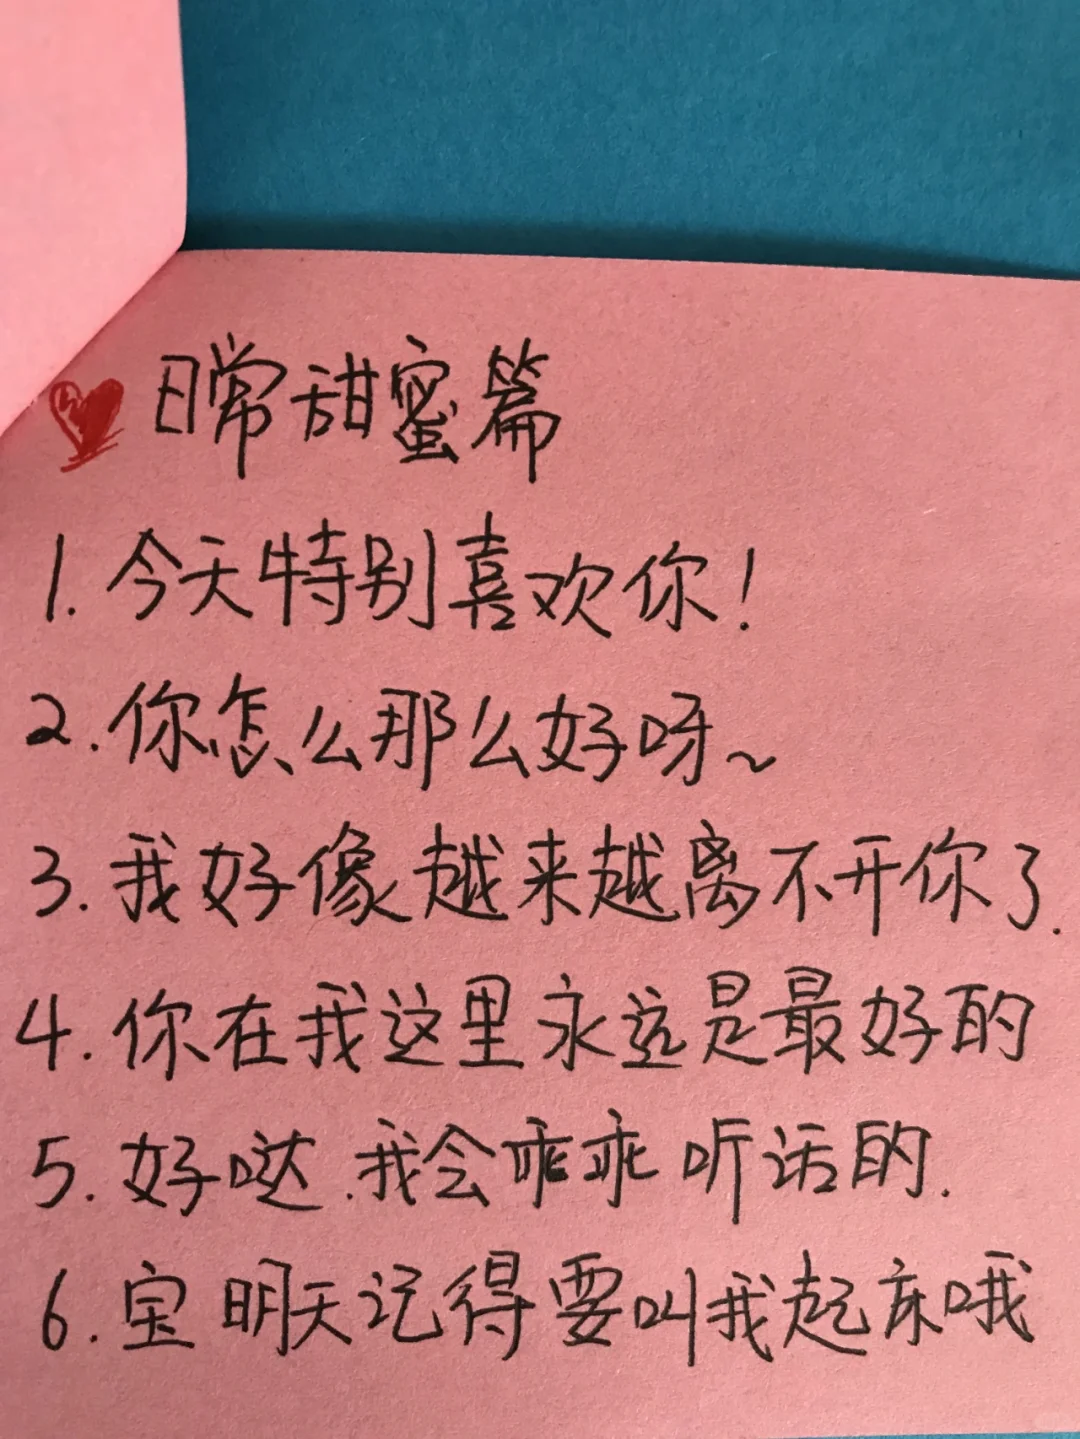 日常甜蜜篇
1. 今天特别喜欢你!
2. 你怎么那么好呀~
3. 我好像越来越离不开你了.
4. 你在我这里永远是最好的
5. 好哒.我会乖乖听话的.
6. 宝 明天记得要叫我起床哦